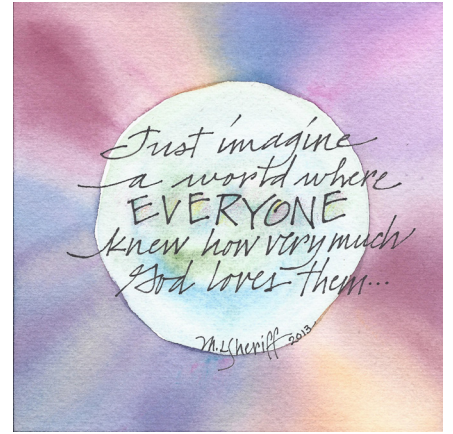 Just imagine
a world where
EVERYONE
knew how very much
God loves them...
M. L. Sheriff 2013